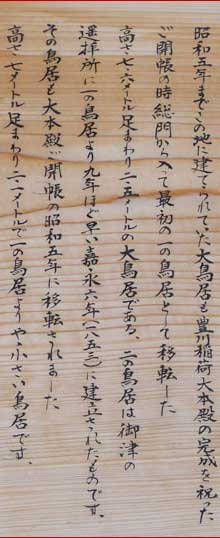 昭和五年までこの地に建てられていた大鳥居も豊川稲荷大本殿の完成を祝った
ご開帳の時総門から入って最初の一の鳥居として移転した
高さ七・六メートル足まわり二・五メートルの大鳥居である、二の鳥居は御津の
遥拝所に一の鳥居より九年ほど早い嘉永六年(一八五三)に建立されたものです。
その鳥居も大本殿ご開帳の昭和五年に移転されました
高さ七メートル足まわり二・一メートルで一の鳥居よりやや小さい鳥居です。